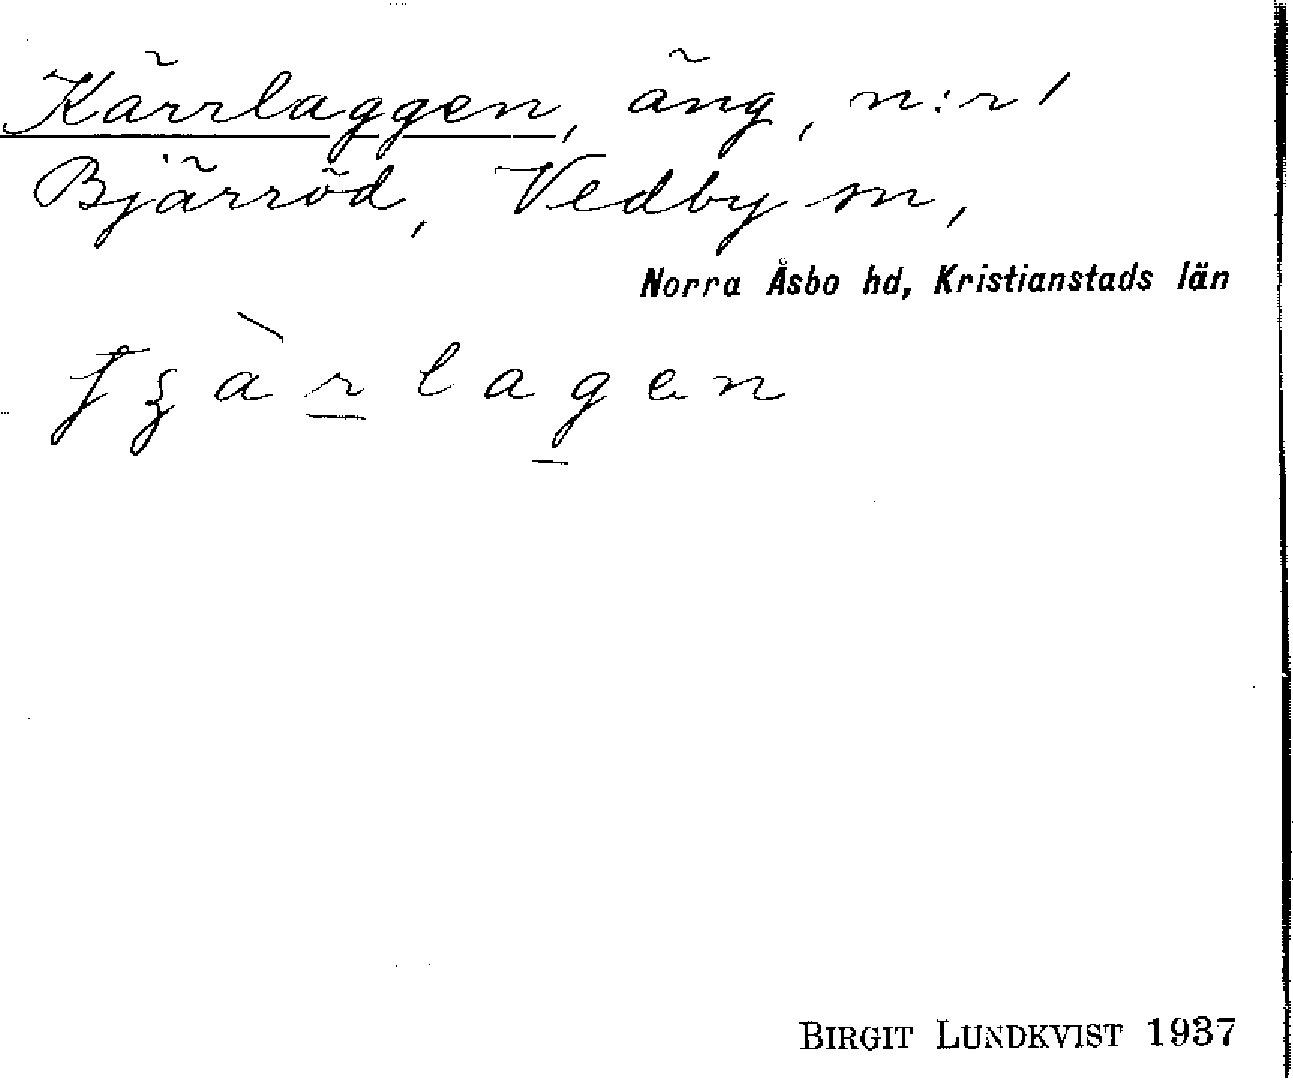 Kärrlaggen, äng, n:r 1
Bjärröd, Vedby sn,
Norra Åsbo hd, Kristianstads län
BIRGIT LUNDKVIST 1937